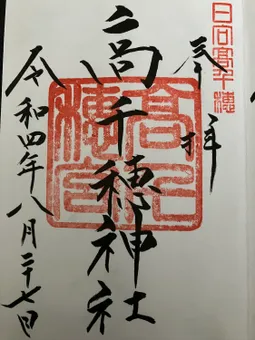 日向高千穂
奉拝
高千穂神社
高千穂宮
令和四年八月二十七日